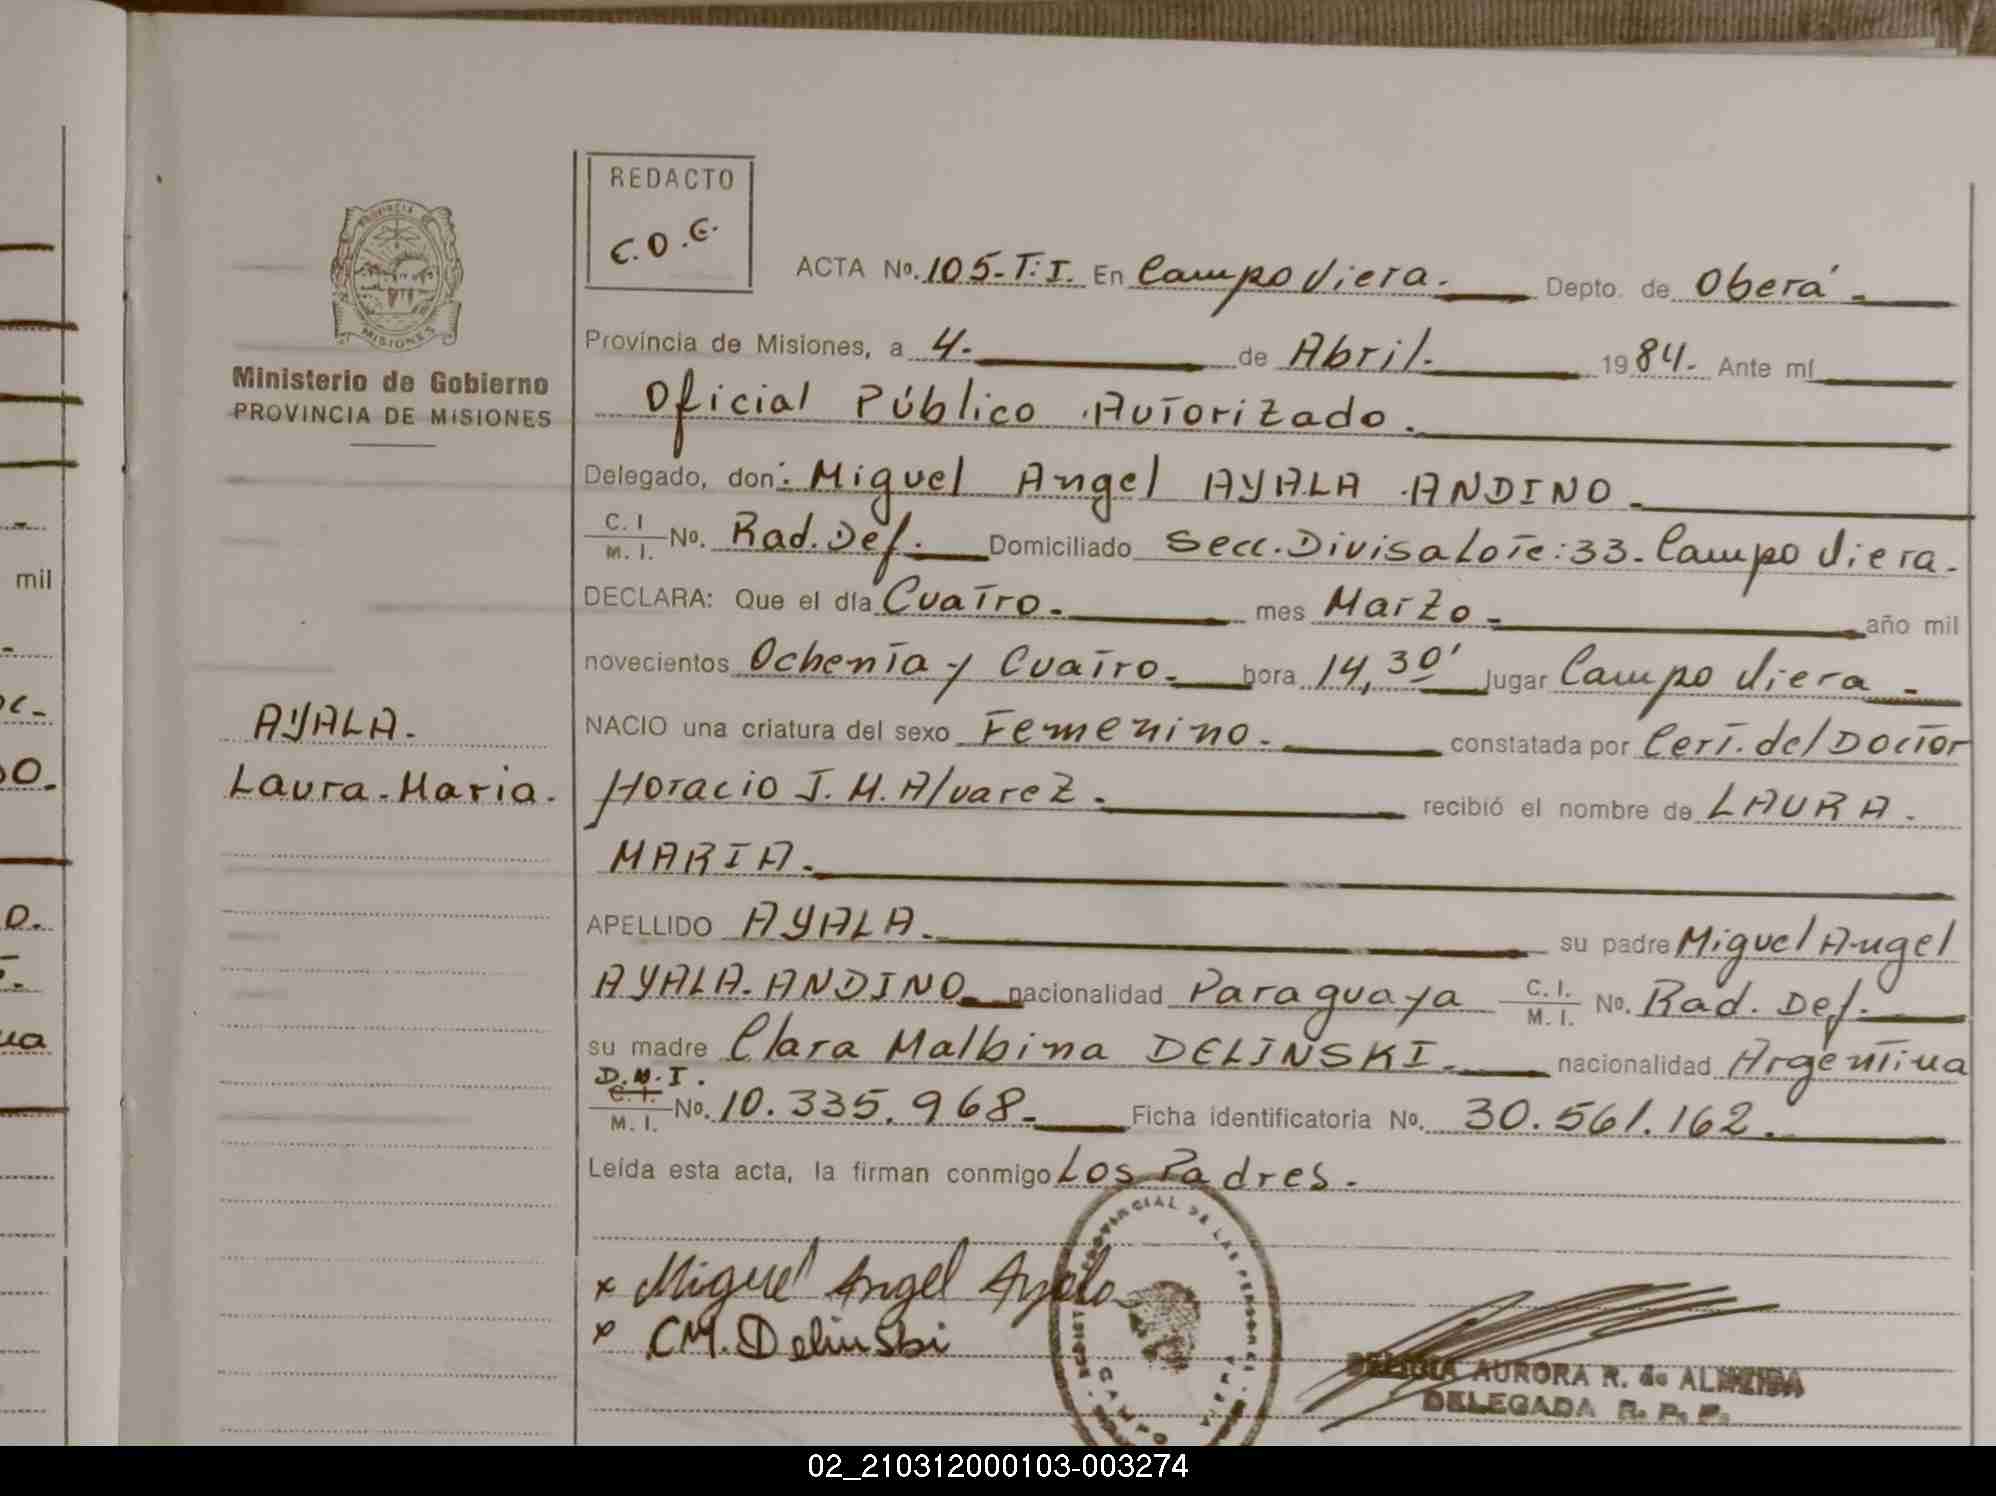 REDACTO
C.O.G.
PROVINCIA DE
MISIONES
Ministerio de Gobierno
PROVINCIA DE MISIONES
ACTA Nº. 105-T:I. En Campo Viera. Depto. de Oberá.
Provincia de Misiones, a 4. de Abril. 1984. Ante mí
Oficial Público Autorizado.
Delegado, don: Miguel Angel AYALA ANDINO.
C. I. M. I. Nº. Rad. Def. Domiciliado Secc. Divisa Lote: 33. Campo Viera.
DECLARA: Que el día Cuatro. mes Marzo. año mil
novecientos Ochenta y Cuatro. hora 14,30' lugar Campo Viera.
NACIO una criatura del sexo Femenino. constatada por Cert. del Doctor
Horacio J. M. Alvarez. recibió el nombre de LAURA.
MARIA.
APELLIDO AYALA. su padre Miguel Angel
AYALA. ANDINO. nacionalidad Paraguaya C. I. M. I. Nº. Rad. Def.
su madre Clara Malbina DELINSKI. nacionalidad Argentina
D.N.I. C. I. M. I. Nº. 10.335.968. Ficha identificatoria Nº. 30.561.162.
Leída esta acta, la firman conmigo Los Padres.
AYALA.
Laura-Maria.
x Miguel Angel Ayala
x CM. Delinski
PROVINCIAL DE LAS PERSONAS
AURORA R. de ALMEIDA
DELEGADA R. P. P.
mil
02_210312000103-003274